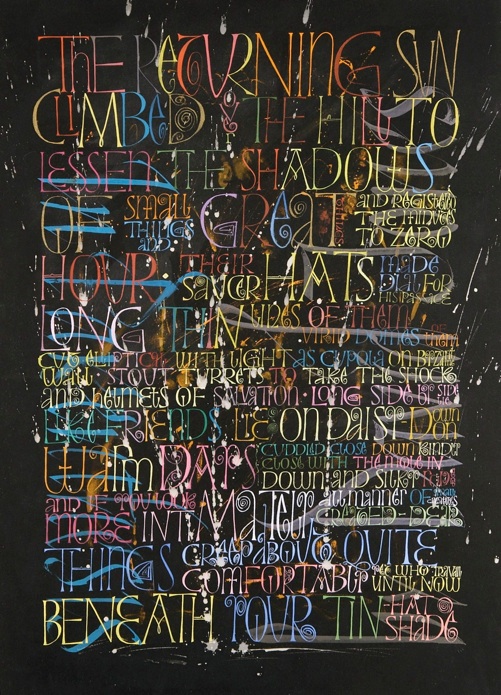 THE RETURNING SUN
CLIMBED THE HILL TO
LESSEN THE SHADOWS
OF SMALL THINGS AND GREAT THINGS AND REGISTERED THE MINUTES TO ZERO
HOUR THEIR SAUCER HATS MADE DIAL FOR HIS
LONG THIN LINES OF THEM DOMES OF THEM
ELLIPTICAL WITH LIGHT AS CUPOLA ON
STOUT TURRETS TO TAKE THE SHOCK
AND HELMETS OF SALVATION · LONG SIDE BY SIDE
LIKE FRIENDS LIE ON DAIS DOWN ON
WARM DAYS CUDDLED CLOSE DOWN CLOSE WITH THE MOLE IN DOWN AND SILKY
AND IF YOU LOOK MORE INTO ALL MANNER OF
THINGS CREEP ABOUT QUITE COMFORTABLY UNTIL NOW
BENEATH YOUR TIN-HAT SHADE